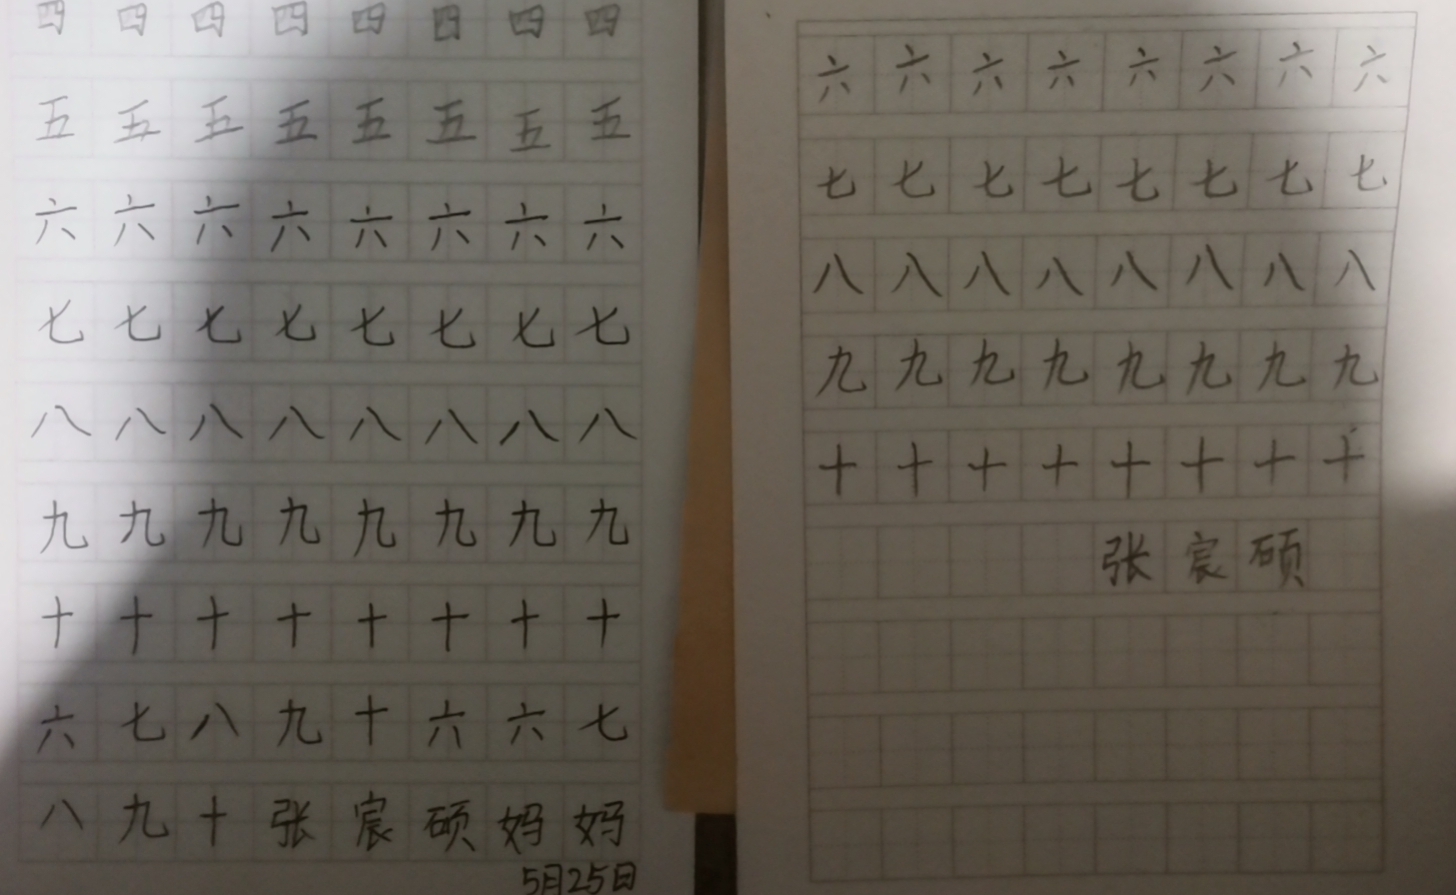 四四四四四四四四
五五五五五五五五
六六六六六六六六
七七七七七七七七
八八八八八八八八
九九九九九九九九
十十十十十十十十
六七八九十六六七
八九十张宸硕妈妈
5月25日
六六六六六六六六
七七七七七七七七
八八八八八八八八
九九九九九九九九
十十十十十十十十
张宸硕